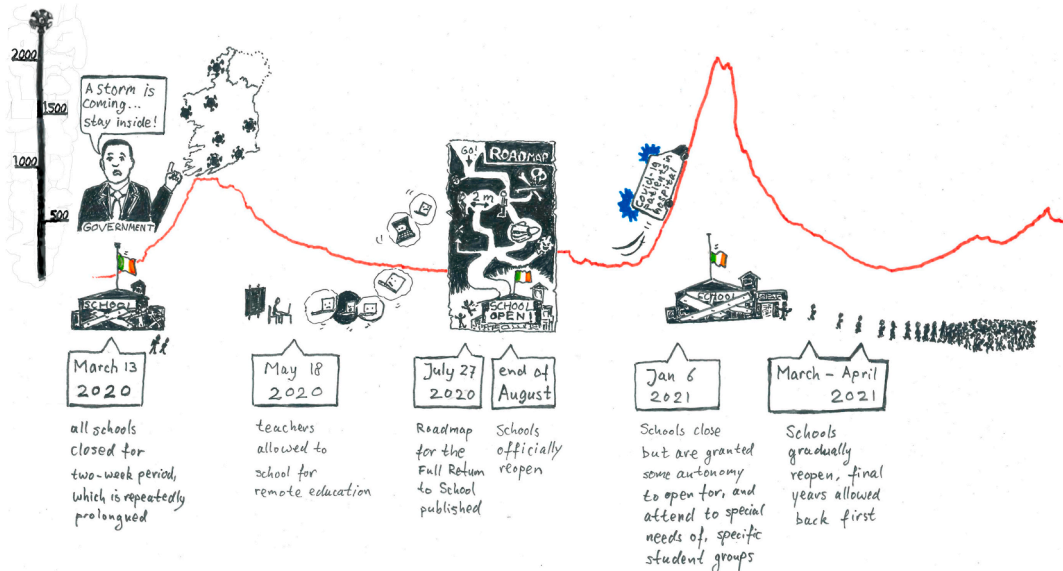 2000
1500
1000
500
A storm is
coming...
stay inside!
GOVERNMENT
SCHOOL
GO!
ROADMAP
2 m
SCHOOL
OPEN!
Covid-19
patients in
hospital
SCHOOL
March 13
2020
all schools
closed for
two-week period,
which is repeatedly
prolongued
May 18
2020
teachers
allowed to
school for
remote education
July 27
2020
Roadmap
for the
Full Return
to School
published
end of
August
Schools
officially
reopen
Jan 6
2021
Schools close
but are granted
some autonomy
to open for, and
attend to special
needs of, specific
student groups
March - April
2021
Schools
gradually
reopen, final
years allowed
back first